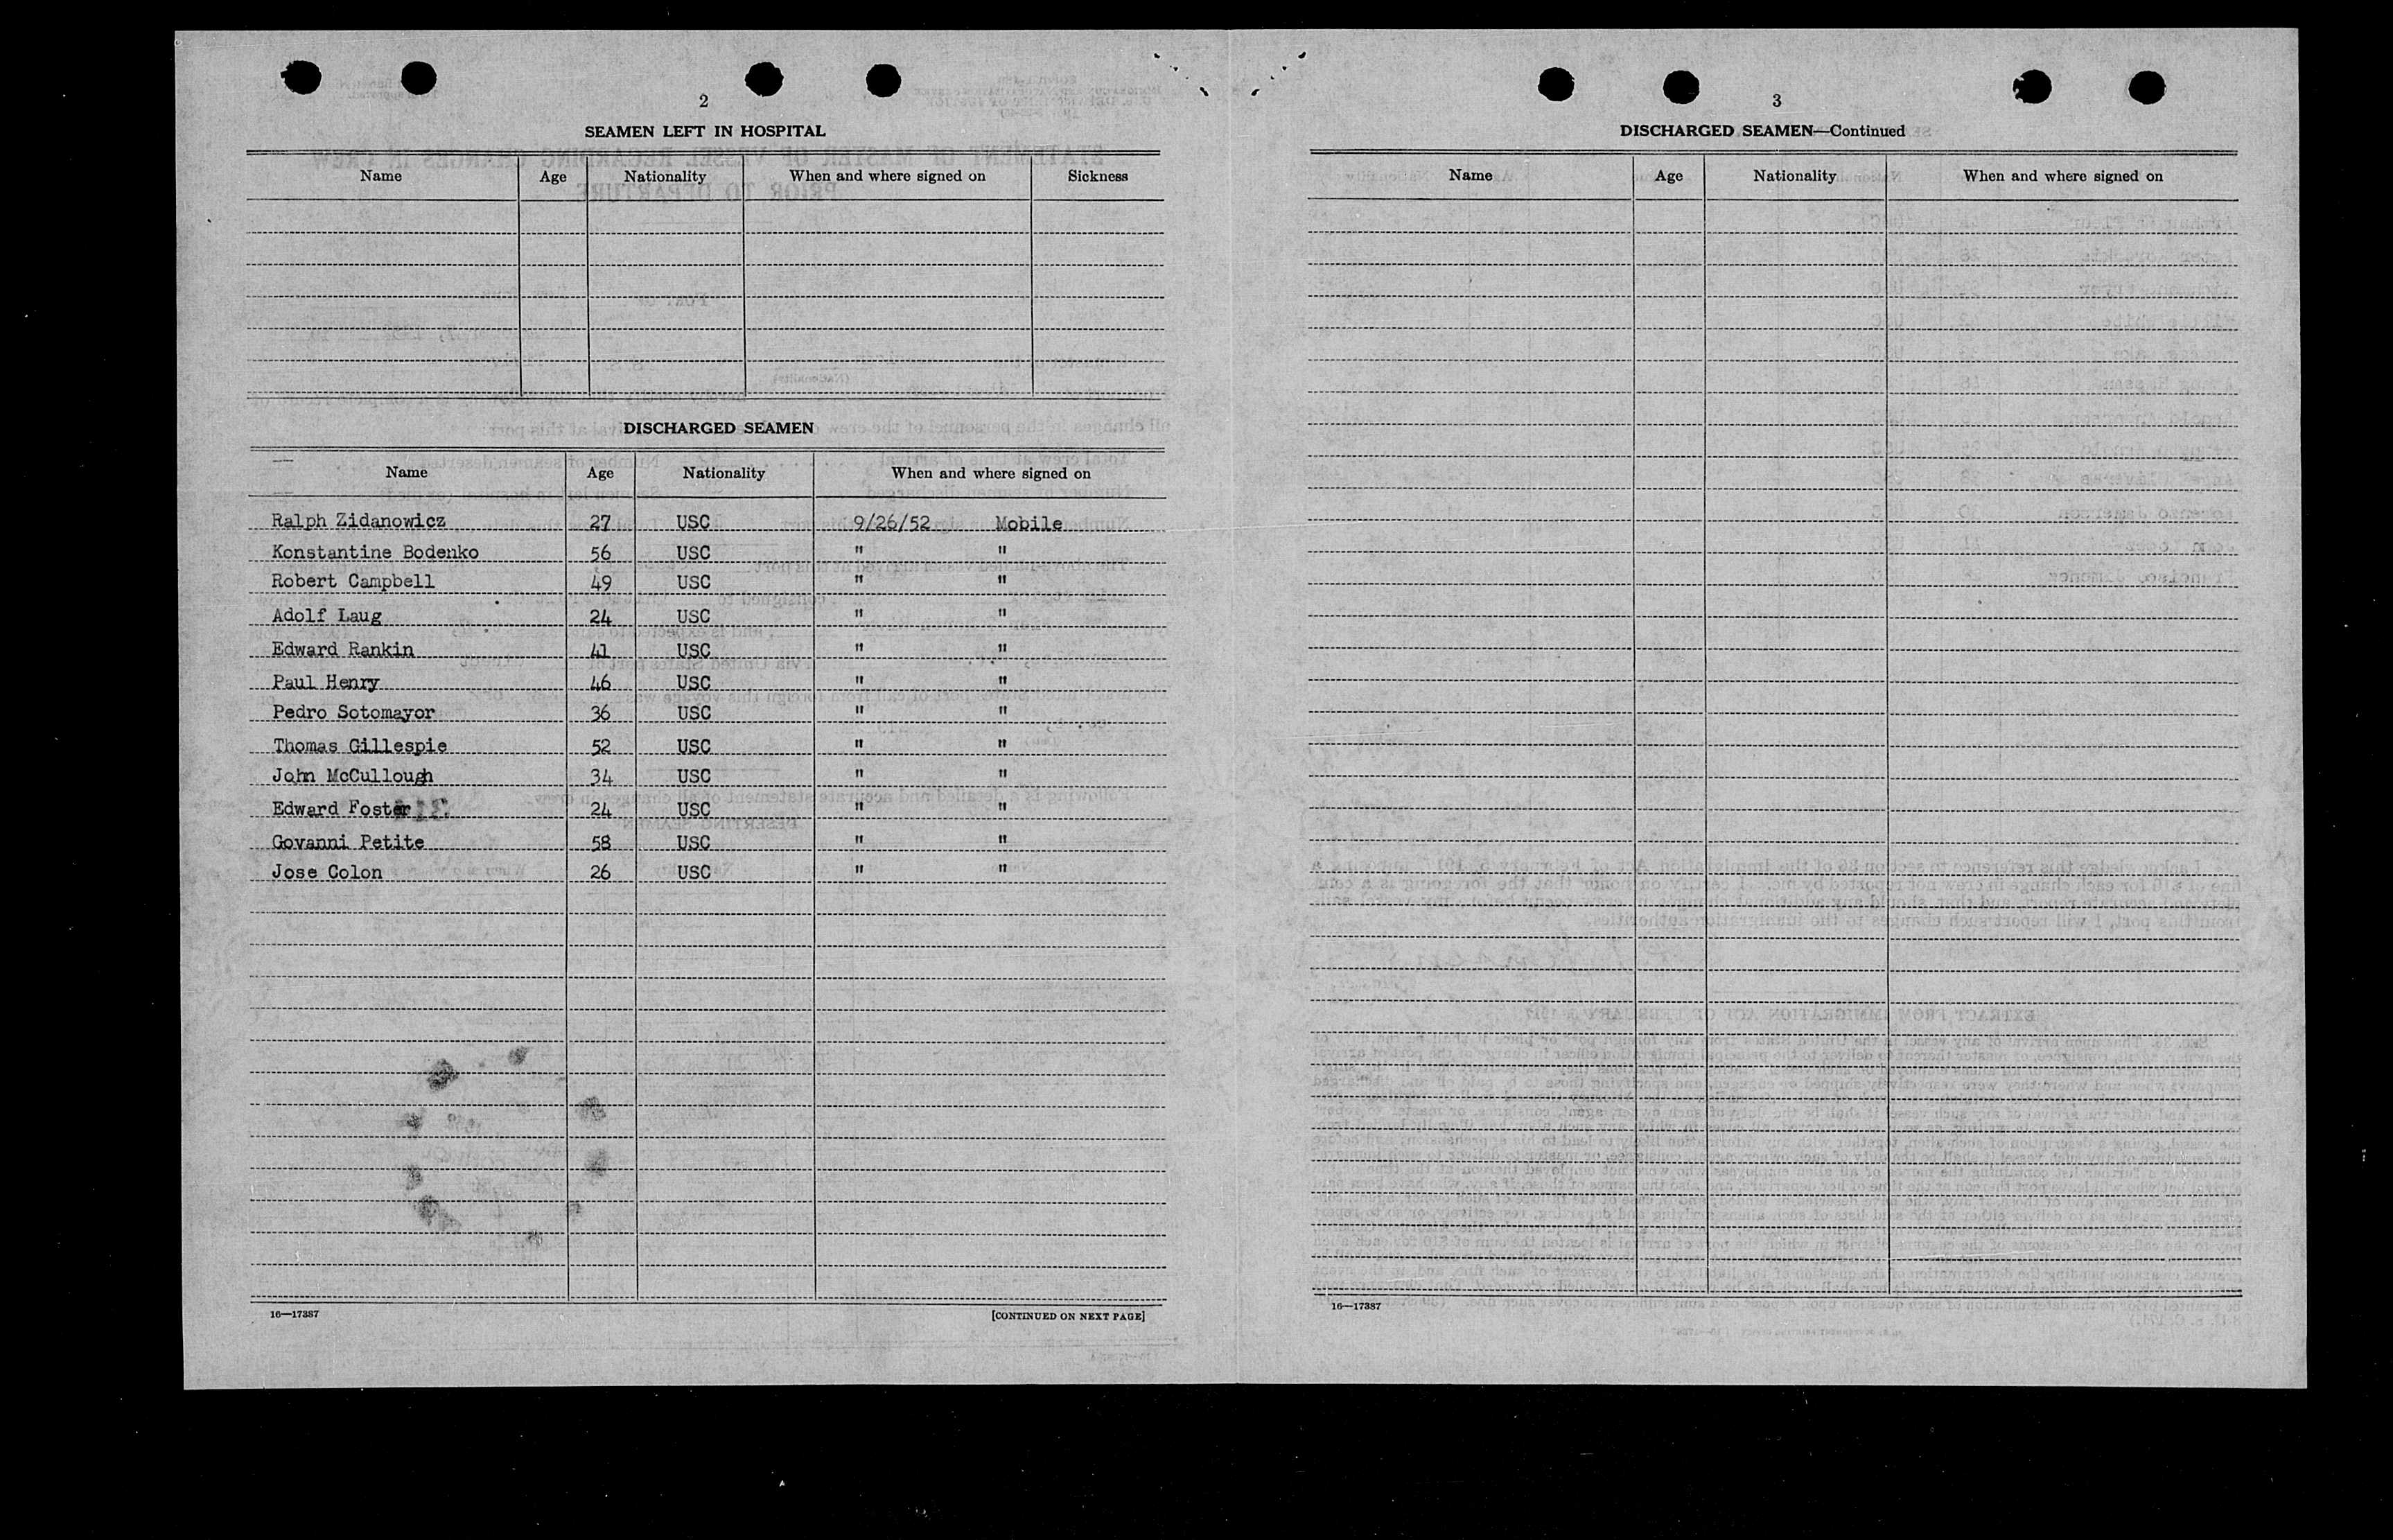 2
SEAMEN LEFT IN HOSPITAL
Name Age Nationality When and where signed on Sickness
DISCHARGED SEAMEN
Name Age Nationality When and where signed on
Ralph Zidanowicz 27 USC 9/26/52 Mobile
Konstantine Bodenko 56 USC " "
Robert Campbell 49 USC " "
Adolf Laug 24 USC " "
Edward Rankin 41 USC " "
Paul Henry 46 USC " "
Pedro Sotomayor 36 USC " "
Thomas Gillespie 52 USC " "
John McCullough 34 USC " "
Edward Foster 24 USC " "
Govanni Petite 58 USC " "
Jose Colon 26 USC " "
16—17387 [CONTINUED ON NEXT PAGE]
3
DISCHARGED SEAMEN—Continued
Name Age Nationality When and where signed on
16—17387